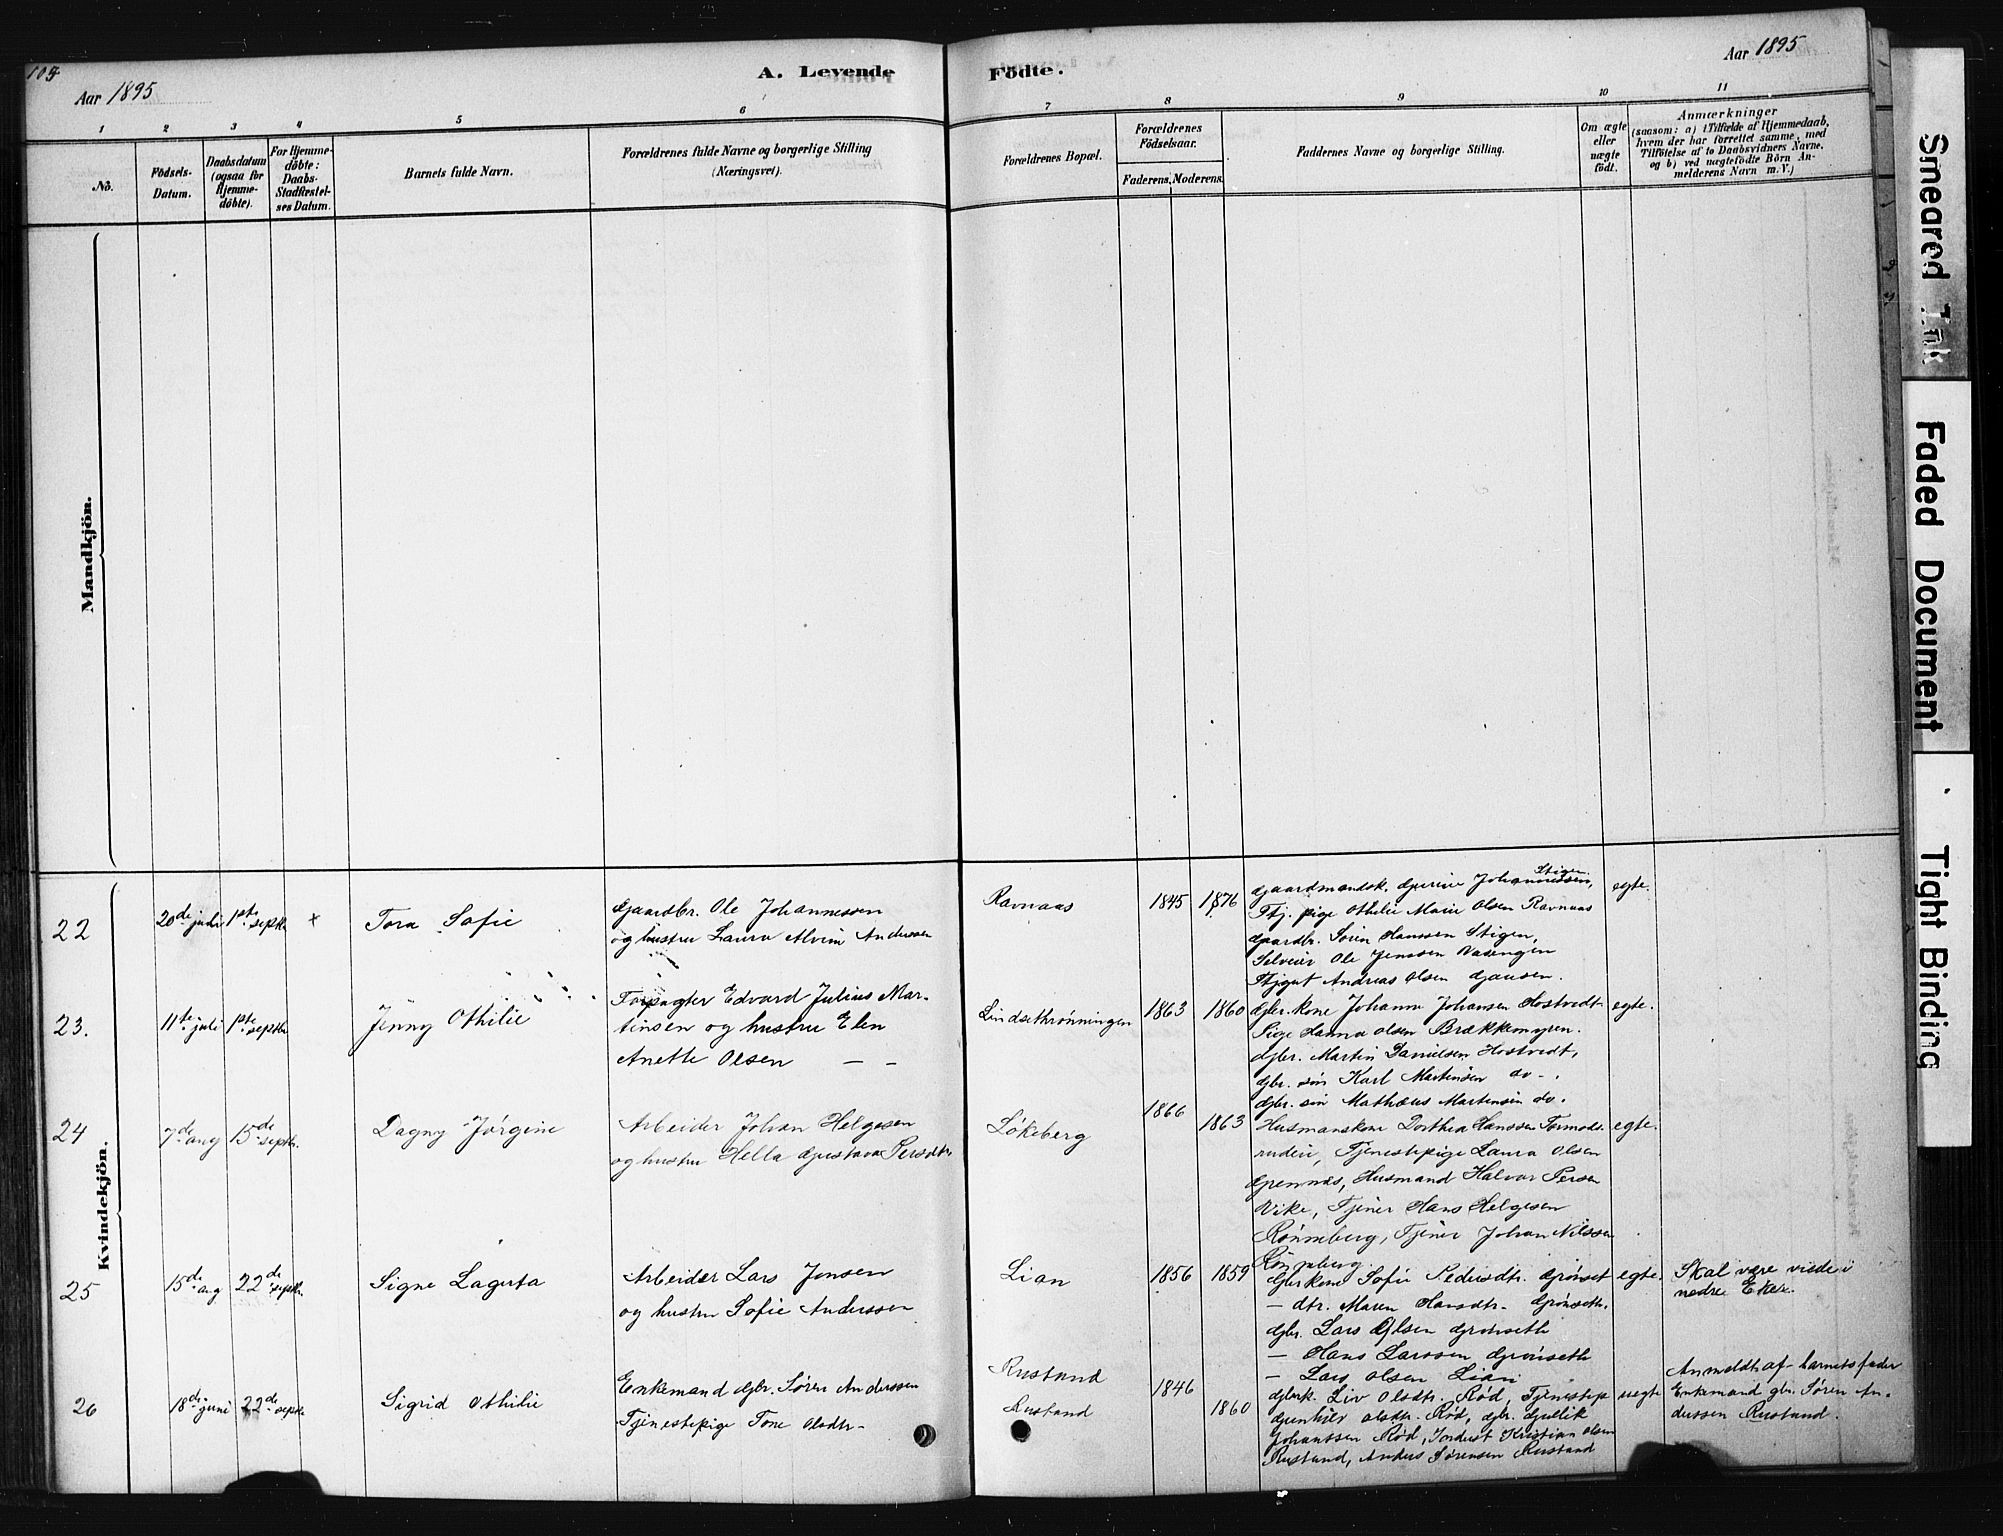 Aar 1895
A. Levende Födte.
Aar 1895
1 2 3 4 5 6 7 8 9 10 11
No.
Födsels-
Datum.
Daabsdatum
(ogsaa for
hjemme-
döbte).
For Hjemme-
döbte:
Daabs-
Stadfæstel-
ses Datum.
Barnets fulde Navn.
Forældrenes fulde Navne og borgerlige Stilling
(Næringsvei).
Forældrenes Bopæl.
Forældrenes
Födselsaar.
Faderens. Moderens.
Faddernes Navne og borgerlige Stilling.
Om ægte
eller
uægte
födt.
Anmærkninger
(saasom: a) i Tilfælde af Hjemmedaab,
hvem der har forrettet samme, med
Tilföielse af to Daabsvidners Navne,
og b) ved uægtefödte Börn An-
melderens Navn m.V.)
Mandkjön.
Kvindekjön.
22
20de juli
1ste septbr
+
Tora Sofie
Gaardbr. Ole Johannessen
og hustru Laura Alvine Anderssen
Ravnaas
1845
1876
Gaardmandsk. Gurine Johannessen,
Stigen
Tj. pige Othilie Marie Olsen Ravnaas
Gaardbr. Sören Hanssen Stigen,
Selveier Ole Jenssen
Tjgut Andreas Olsen
egte.
23.
11te juli
1ste septbr
Jenny Othilie
Forpagter Edvard Julius Mar-
tinsen og hustru Elen
Anette Olsen — —
Lindsethrønningen
1863
1860
Gbr. kone Johanne Johansen Hostvedt
Pige Hanna Olsen Brækkemyren.
Gbr. Martin Danielsen Hostvedt,
Gbr. søn Karl Martinsen do -.
Gbr. søn Mathæus Martensen do.
egte.
24
7de aug
15de septbr.
Dagny Jørgine
Arbeider Johan Helgesen
og hustru Hella Gustava Persdtr
Løkeberg
1866
1863
Husmanskone Dorthea Hanssen Tormods-
rudeie, Tjenestepige Laura Olsen
Grennes, Husmand Halvor Persen
Vike, Tjener Hans Helgesen
Rønneberg, Tjener Johan Nilssen
Rønneberg.
egte.
25
15de aug
22de septbr.
Signe Lagerta
Arbeider Lars Jensen
og hustru Sofie Anderssen
Lian
1856
1859
Gbr kone Sofie Pedersdtr. Grønset
— dtr. Maren Hansdtr. Grønseth.
Gbr. Lars Olsen Grønseth
— Hans Larssen Grønseth
— Lars Olsen Lian
egte.
Skal være viede i
nedre Eker.
26
18de juni
22de septbr
Sigrid Othilie
Enkemand Gbr. Søren Anderssen
Tjenestepige Tone Olsdtr-
Rustand
Rustand
1846
1860
Gbrk. Liv Olsdtr. Rød, Tjenestep
Gunhild Olsdtr. Rød, Gbr. Gullik
Johanssen Rød, Inderst Kristian Olsen
Rustand, Anders Sørensen Rustand
uegte
Anmeldt af barnets fader
Enkemand gbr. Søren An-
derssen Rustand.
Smeared Ink
Faded Document
Tight Binding